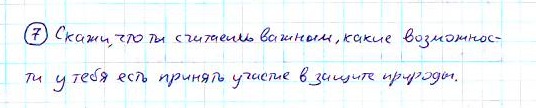 7 Скажи, что ты считаешь важным, какие возможнос-
ти у тебя есть принять участие в защите природы.